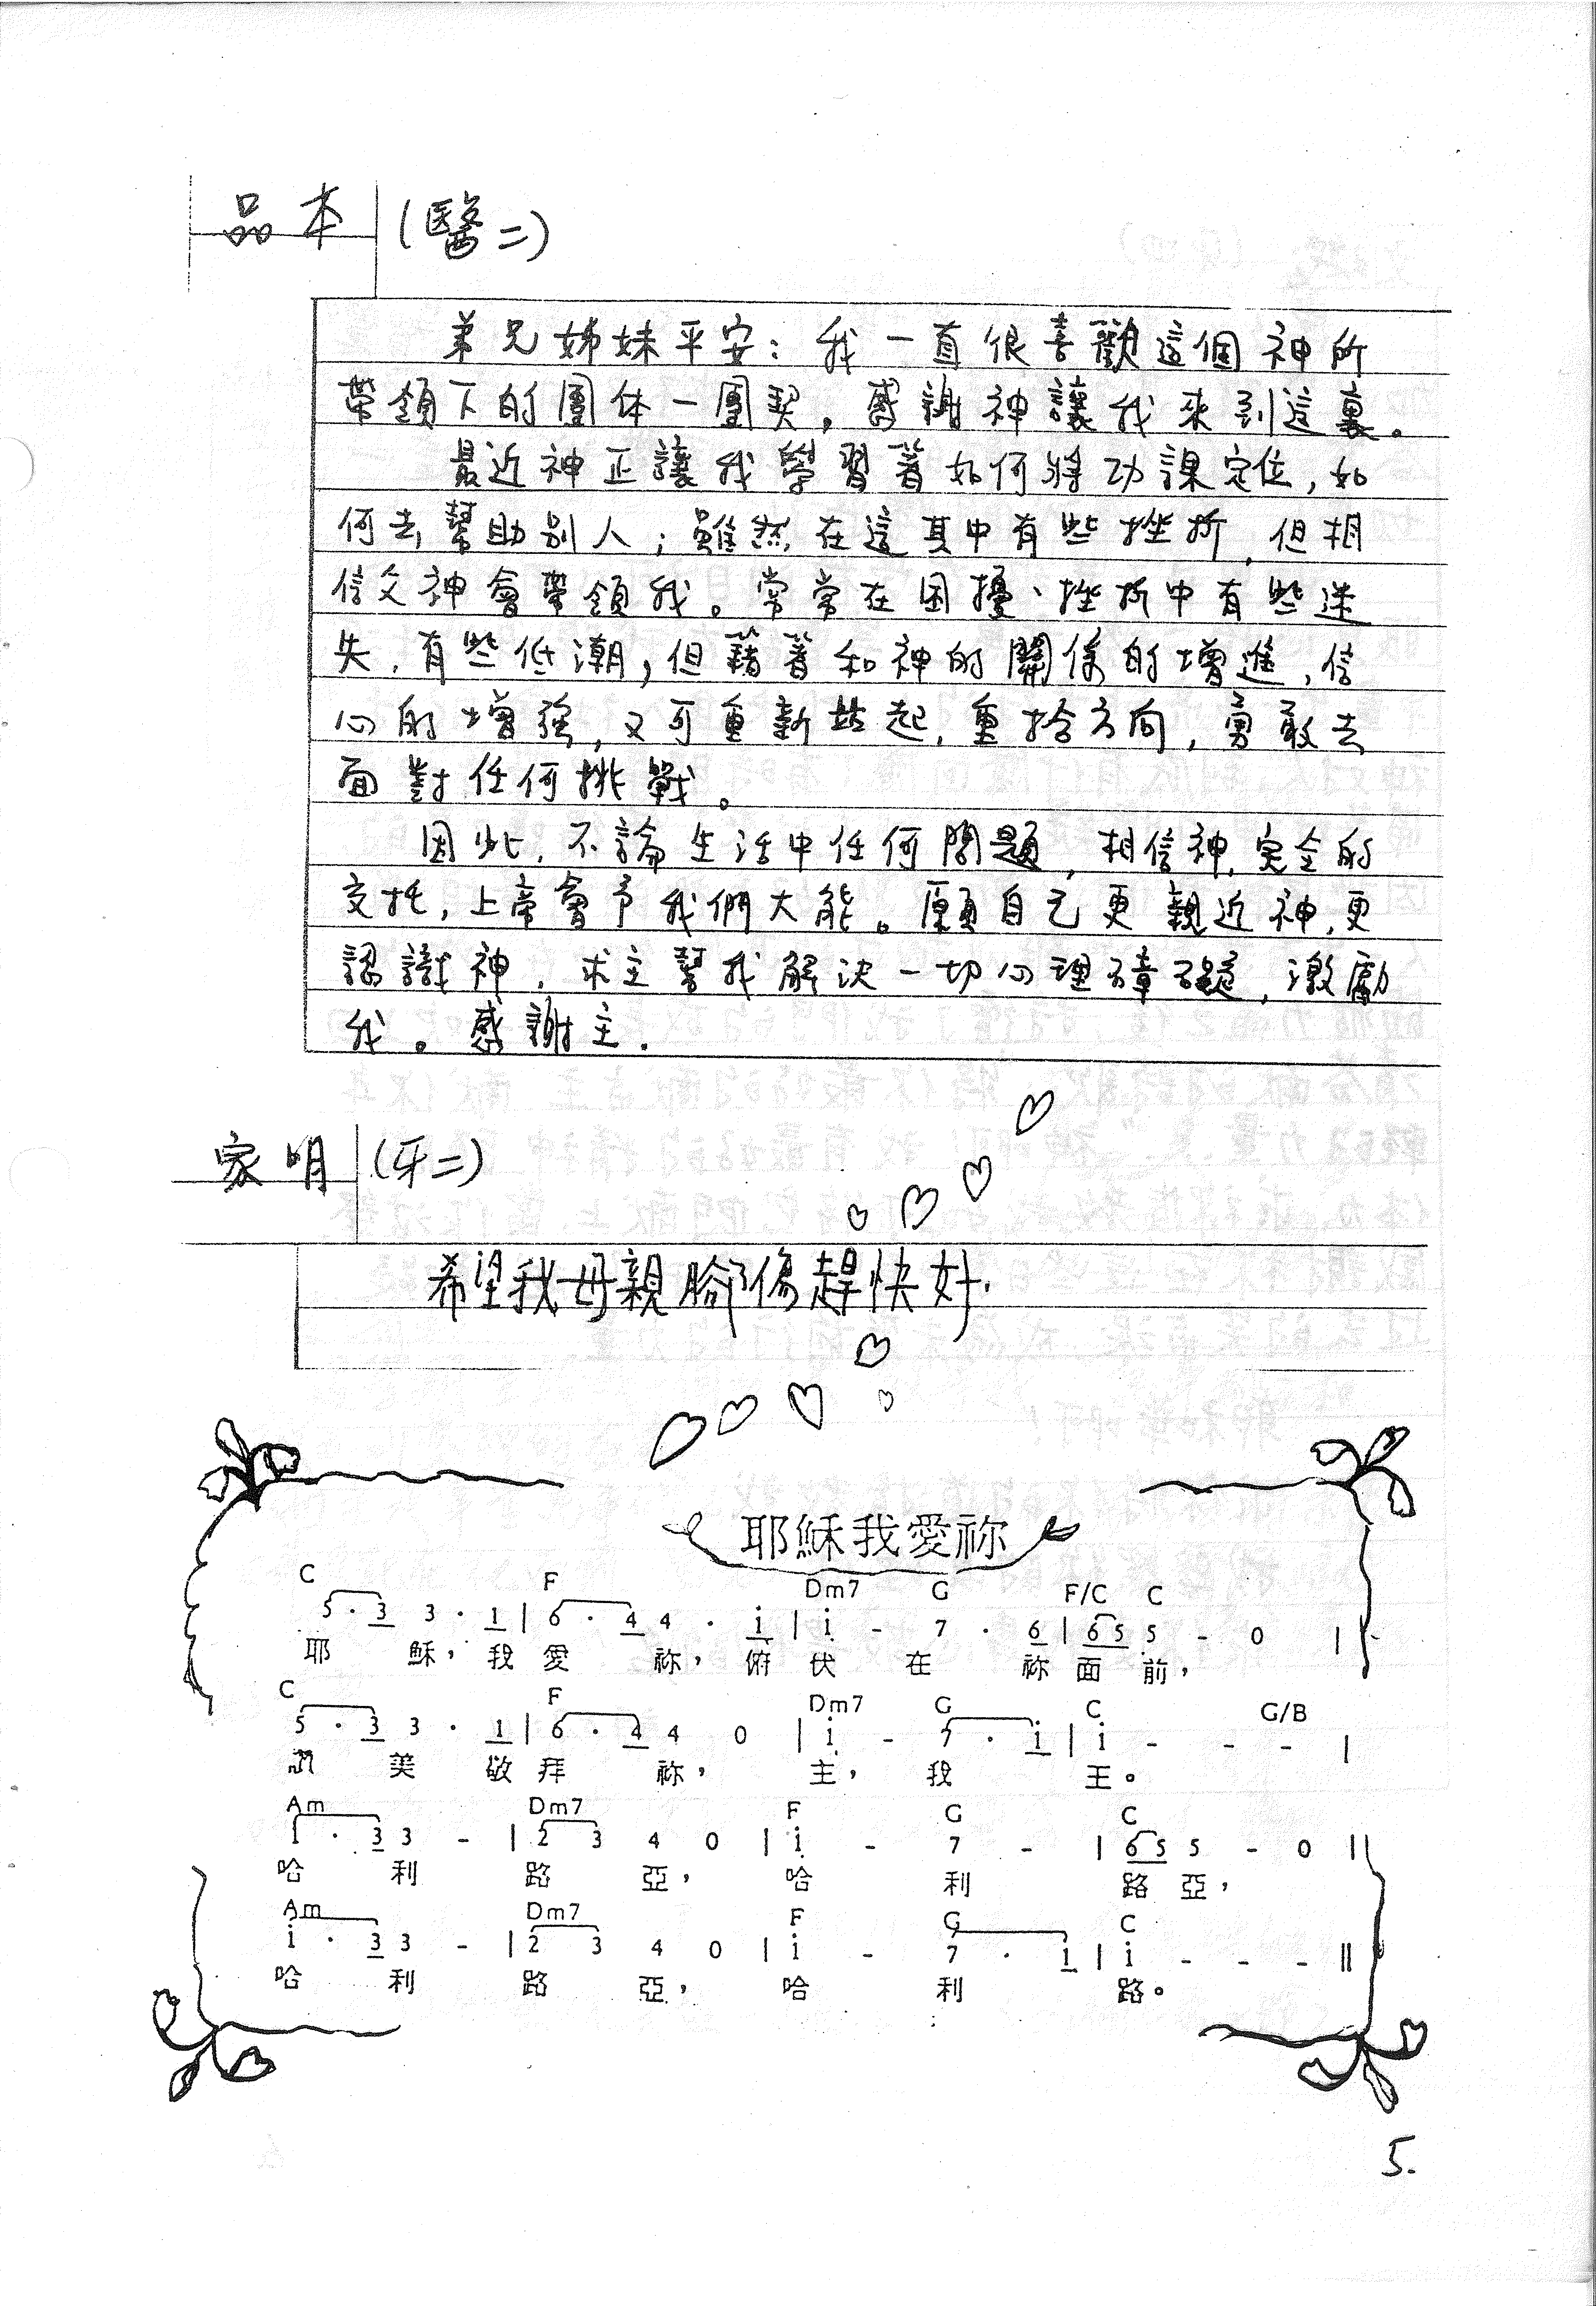 品本 (醫二)
弟兄姊妹平安：我一直很喜歡這個神所
帶領下的團体—團契，感謝神讓我來到這裏。
最近神正讓我學習著如何將功課定位，如
何去幫助別人；雖然在這其中有些挫折，但相
信父神會帶領我。常常在困擾、挫折中有些迷
失，有些低潮，但藉著和神的關係的增進，信
心的增強，又可重新站起，重拾方向，勇敢去
面對任何挑戰。
因此，不論生活中任何問題，相信神，完全的
交托，上帝會予我們大能。願自己更親近神，更
認識神，求主幫我解決一切心理障礙，激勵
我。感謝主.
家明 (牙二)
希望我母親腳傷趕快好.
耶穌我愛祢
C F Dm7 G F/C C
5 · 3 3 · 1 | 6 · 4 4 · i | i - 7 · 6 | 6 5 5 - 0 |
耶 穌，我 愛 祢，俯 伏 在 祢 面 前，
C F Dm7 G C G/B
5 · 3 3 · 1 | 6 · 4 4 0 | i - 7 · i | i - - - |
美 敬 拜 祢， 主， 我 王。
Am Dm7 F G C
1 · 3 3 - | 2 3 4 0 | i - 7 - | 6 5 5 - 0 ||
哈 利 路 亞， 哈 利 路 亞，
Am Dm7 F G C
i · 3 3 - | 2 3 4 0 | i - 7 · 1 | i - - - ||
哈 利 路 亞， 哈 利 路。
5.